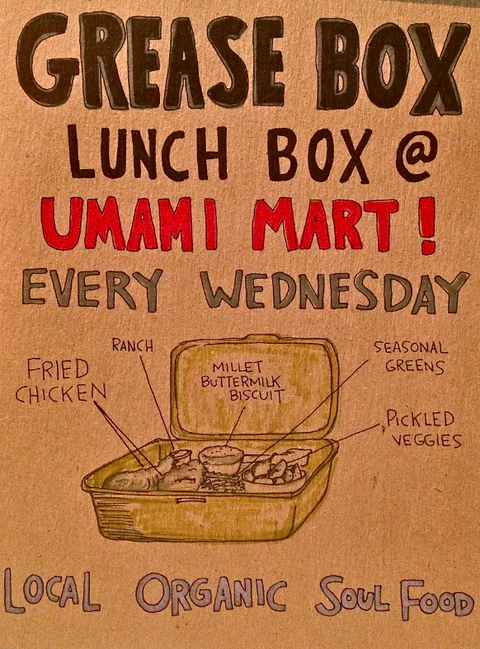 GREASE BOX
LUNCH BOX @
UMAMI MART!
EVERY WEDNESDAY
RANCH
FRIED
CHICKEN
MILLET
BUTTERMILK
BISCUIT
SEASONAL
GREENS
PICKLED
VEGGIES
LOCAL ORGANIC SOUL FOOD